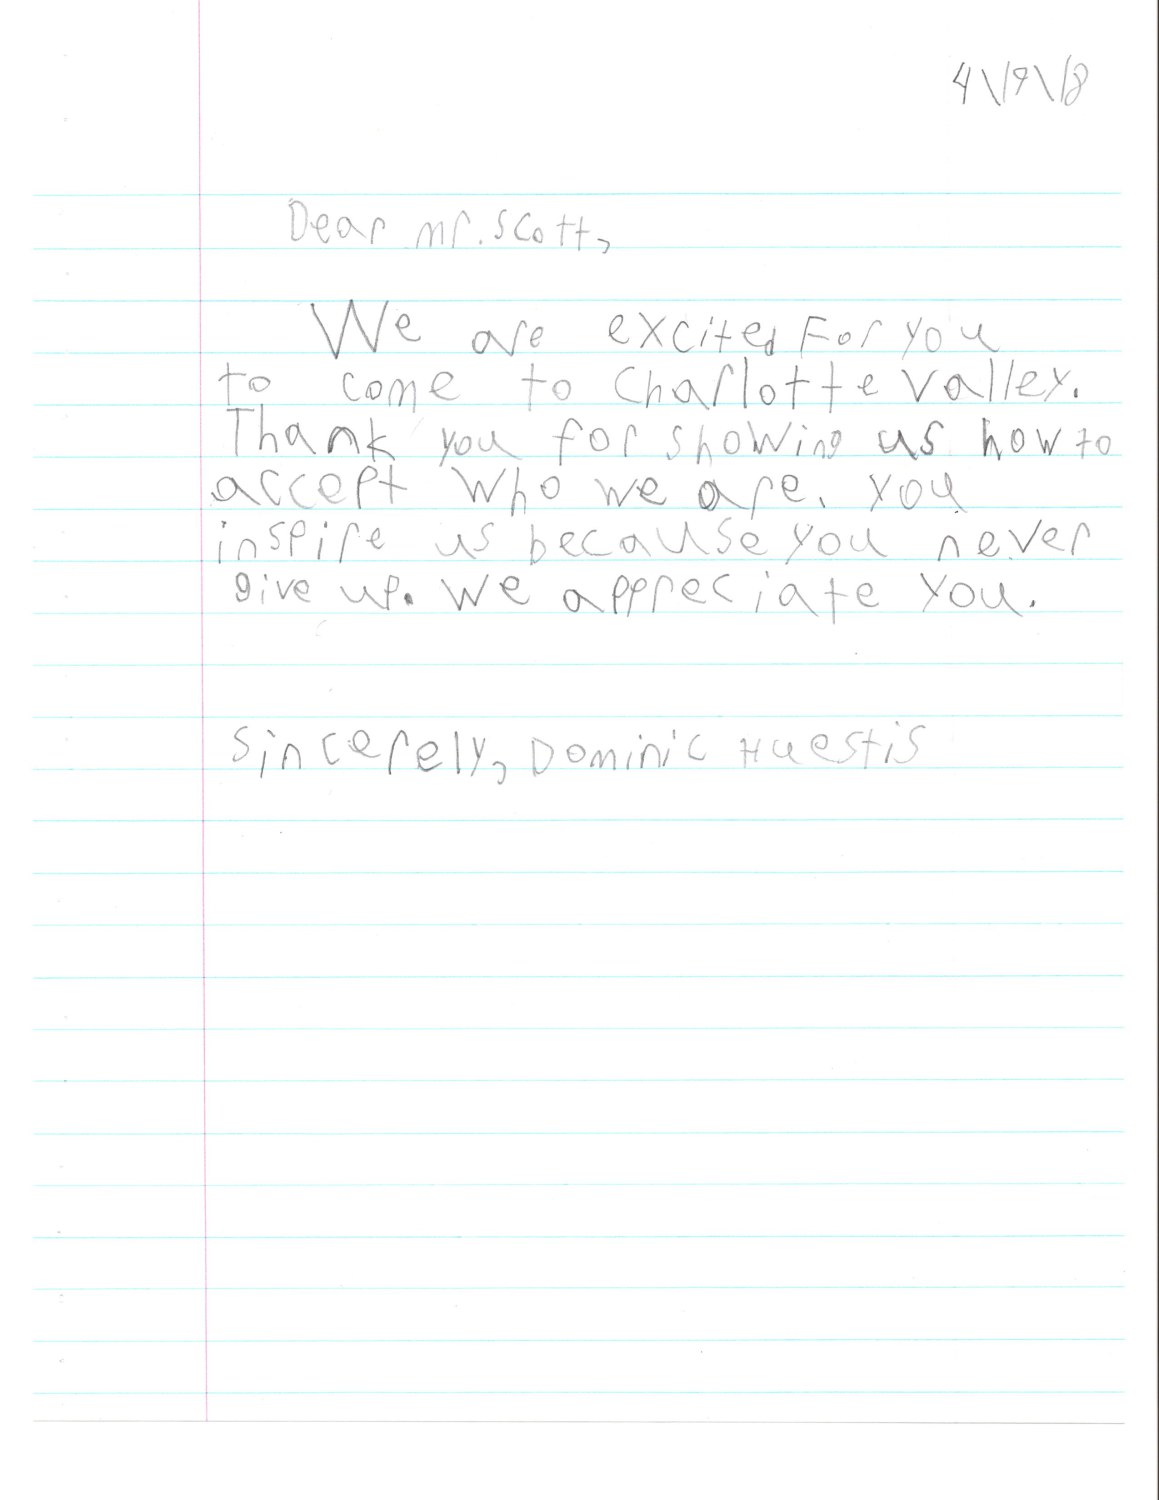 4\19\18
Dear mr. Scott,
We are excited For you
to come to Charlotte valley.
Thank you for showing us how to
accept who we are. you
inspire us because you never
give up. We appreciate you.
Sincerely, Dominic Huestis